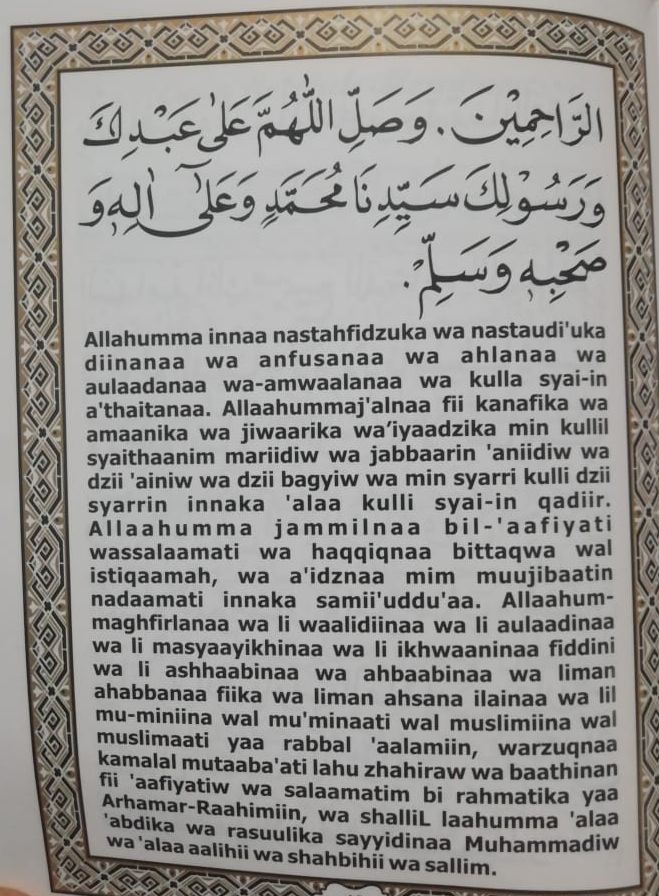 الرَّاحِمِيْنَ. وَصَلِّ اللّٰهُمَّ عَلٰى عَبْدِكَ
وَرَسُوْلِكَ سَيِّدِنَا مُحَمَّدٍ وَعَلٰٓى اٰلِهٖ وَ
صَحْبِهٖ وَسَلِّمْ.
Allahumma innaa nastahfidzuka wa nastaudi'uka
diinanaa wa anfusanaa wa ahlanaa wa
aulaadanaa wa-amwaalanaa wa kulla syai-in
a'thaitanaa. Allaahummaj'alnaa fii kanafika wa
amaanika wa jiwaarika wa'iyaadzika min kullil
syaithaanim mariidiw wa jabbaarin 'aniidiw wa
dzii 'ainiw wa dzii bagyiw wa min syarri kulli dzii
syarrin innaka 'alaa kulli syai-in qadiir.
Allaahumma jammilnaa bil-'aafiyati
wassalaamati wa haqqiqnaa bittaqwa wal
istiqaamah, wa a'idznaa mim muujibaatin
nadaamati innaka samii'uddu'aa. Allaahum-
maghfirlanaa wa li waalidiinaa wa li aulaadinaa
wa li masyaayikhinaa wa li ikhwaaninaa fiddini
wa li ashhaabinaa wa ahbaabinaa wa liman
ahabbanaa fiika wa liman ahsana ilainaa wa lil
mu-miniina wal mu'minaati wal muslimiina wal
muslimaati yaa rabbal 'aalamiin, warzuqnaa
kamalal mutaaba'ati lahu zhahiraw wa baathinan
fii 'aafiyatiw wa salaamatim bi rahmatika yaa
Arhamar-Raahimiin, wa shalliL laahumma 'alaa
'abdika wa rasuulika sayyidinaa Muhammadiw
wa 'alaa aalihii wa shahbihii wa sallim.